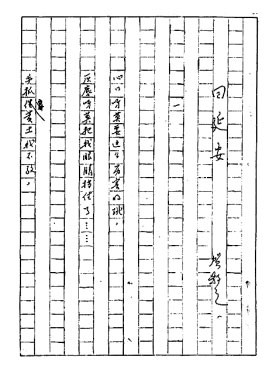 回延安
贺敬之。
一
心口呀莫要这么厉害的跳，
灰塵呀莫把我眼睛挡住了……
手抓黄土我不放，